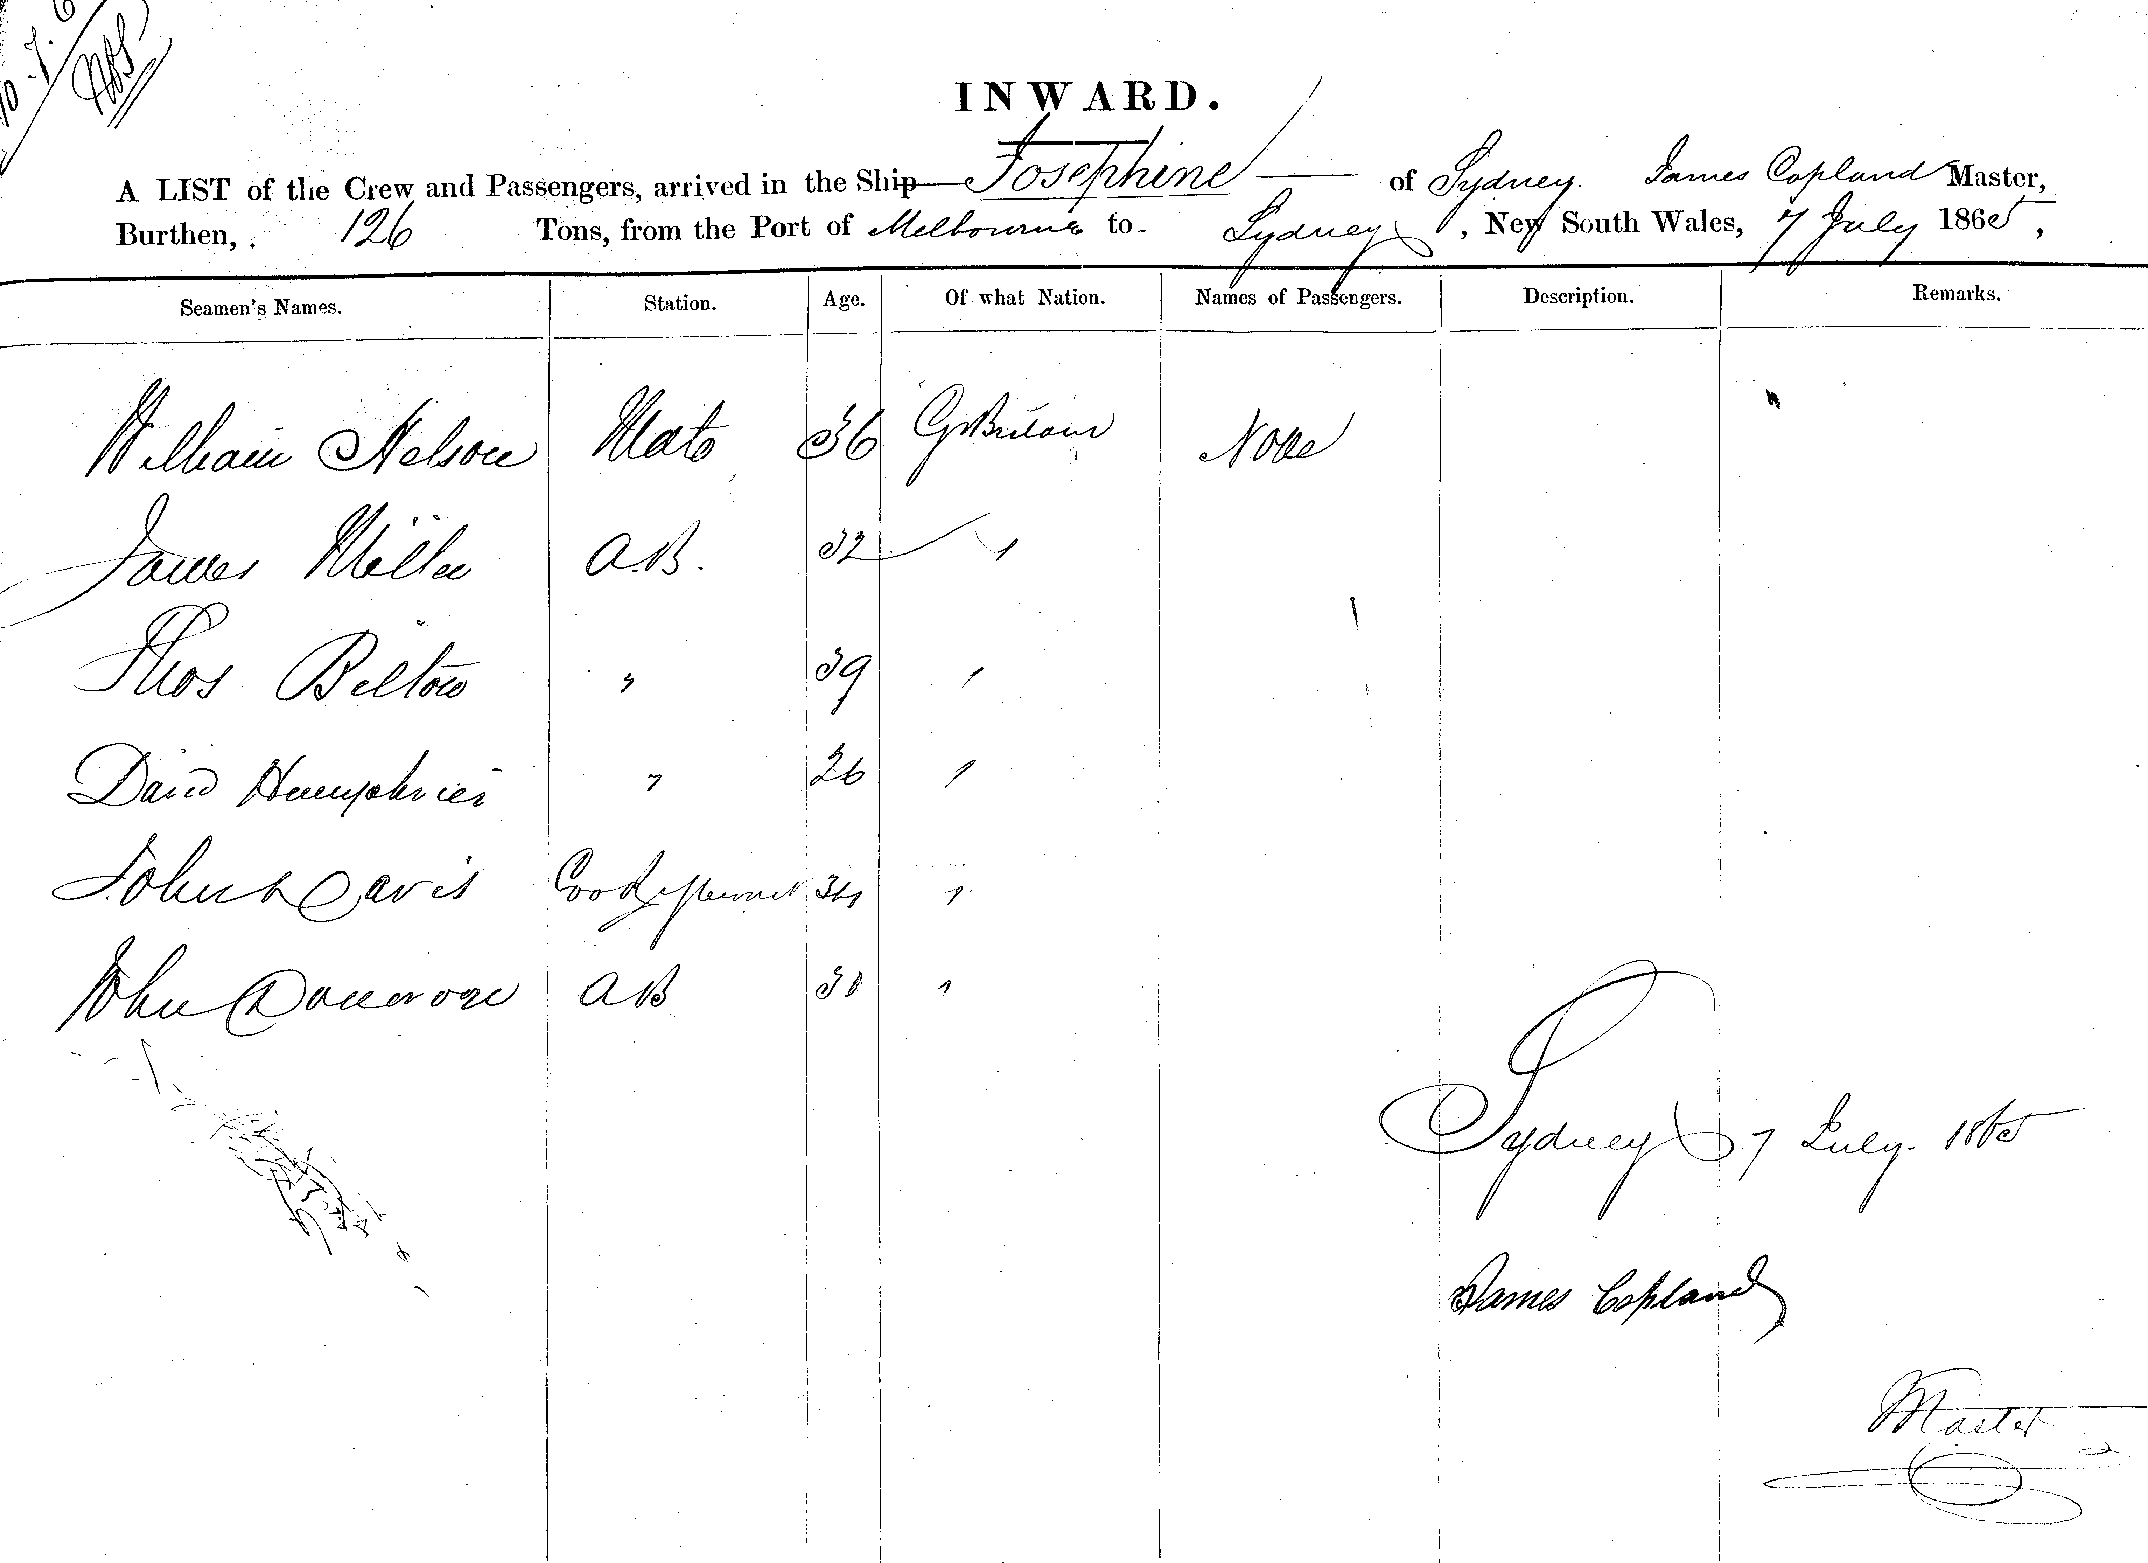 INWARD.
A LIST of the Crew and Passengers, arrived in the Ship Josephine of Sydney. James Copland Master,
Burthen, 126 Tons, from the Port of Melbourne to Sydney, New South Wales, 7 July 1865,
Seamen's Names. Station. Age. Of what Nation. Names of Passengers. Description. Remarks.
William Nelson Mate 36 Gt Britain None
James Miller A.B. 32 "
Thos Bilton " 39 "
David Humphries " 26 "
John Davis Cook & Steward 34 "
John Donovan AB 30 "
Sydney 7 July. 1865
James Copland
Master